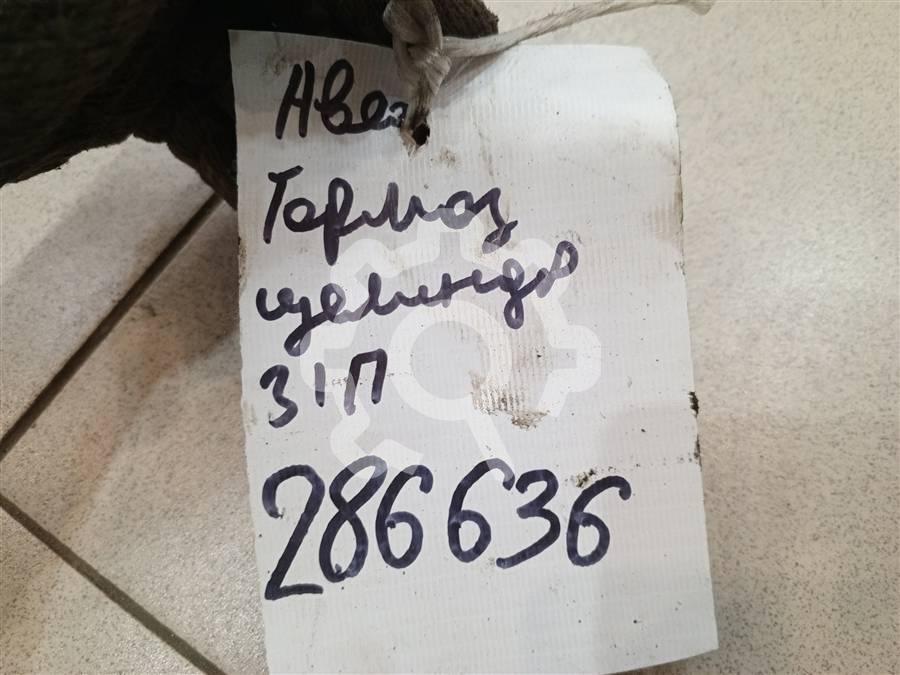 Авео
Тормоз
цилиндр
З\П
286636